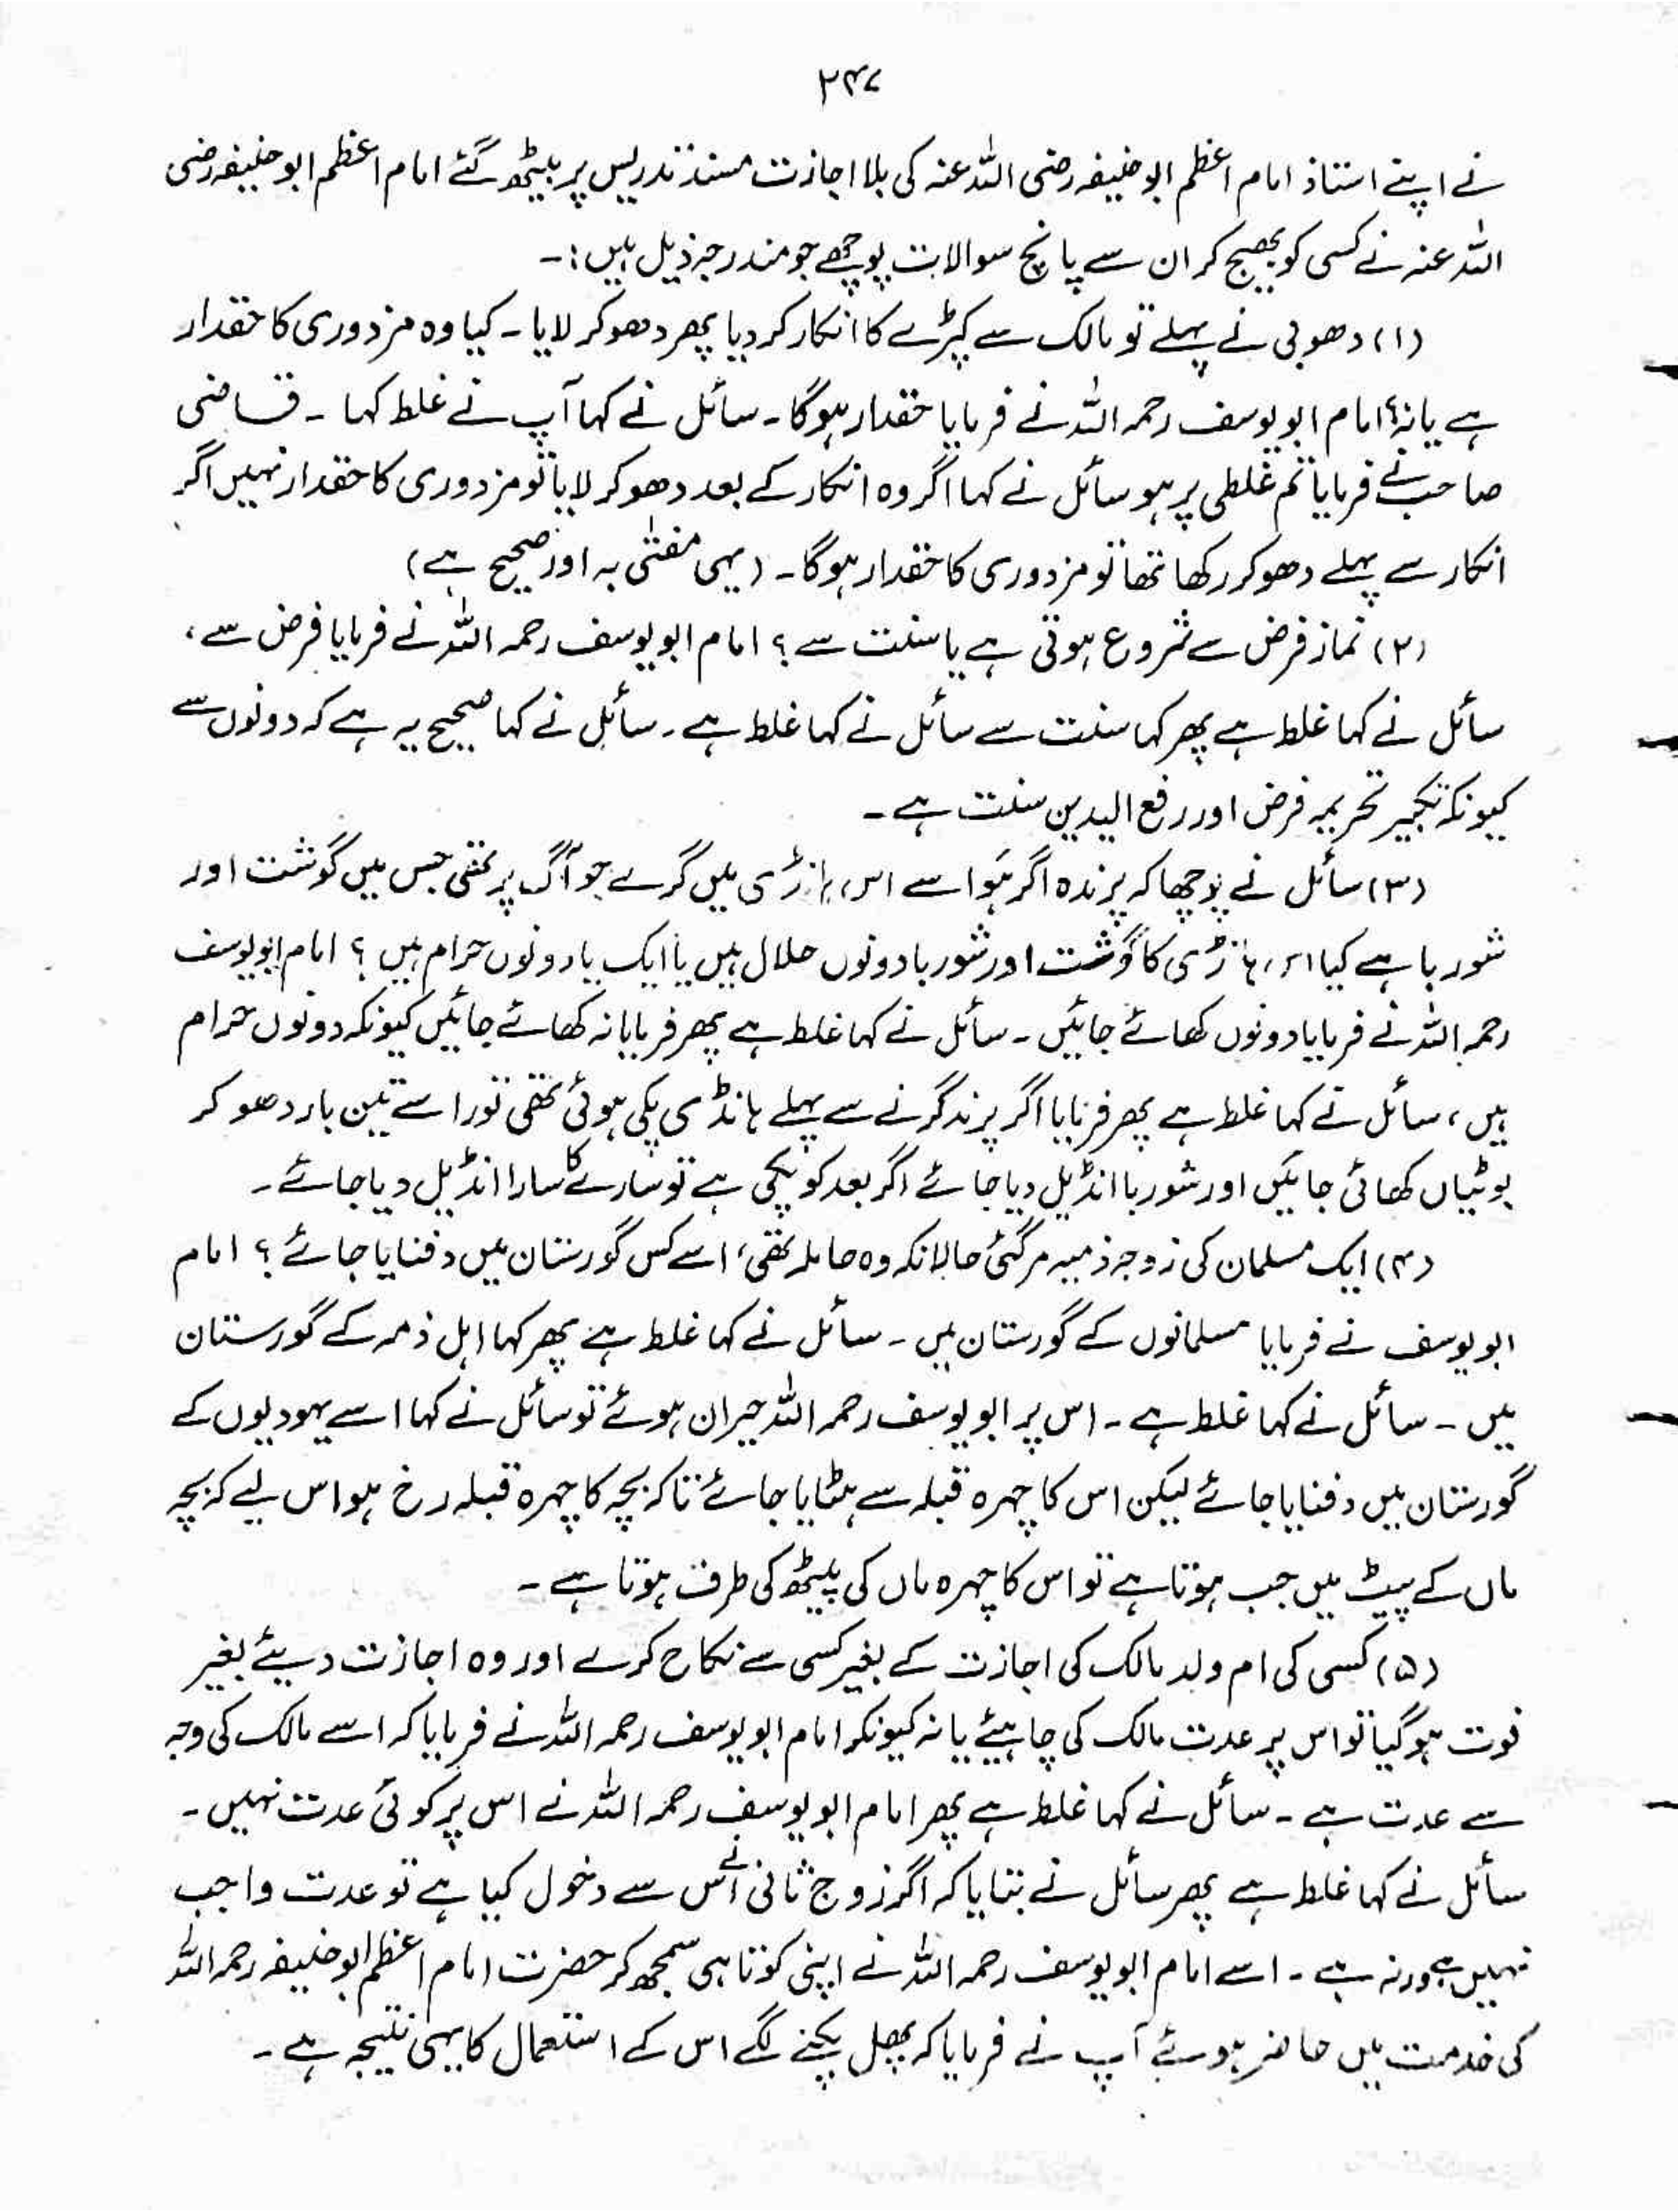 ۲۴۷
نے اپنے استاذ امام اعظم ابو حنیفہ رضی اللہ عنہ کی بلا اجازت مسند تدریس پر بیٹھ گئے امام اعظم ابو حنیفہ رضی
اللہ عنہ نے کسی کو بھیج کر ان سے پانچ سوالات پوچھے جو مندرجہ ذیل ہیں :۔
(۱) دھوبی نے پہلے تو مالک سے کپڑے کا انکار کر دیا پھر دھو کر لایا ۔ کیا وہ مزدوری کا حقدار
ہے یا نہ؟ امام ابو یوسف رحمہ اللہ نے فرمایا حقدار ہوگا ۔ سائل نے کہا آپ نے غلط کہا ۔ قاضی
صاحب نے فرمایا تم غلطی پر ہو سائل نے کہا اگر وہ انکار کے بعد دھو کر لایا تو مزدوری کا حقدار نہیں اگر
انکار سے پہلے دھو کر رکھا تھا تو مزدوری کا حقدار ہوگا ۔ (یہی مفتٰی بہ اور صحیح ہے)
(۲) نماز فرض سے شروع ہوتی ہے یا سنت سے ؟ امام ابو یوسف رحمہ اللہ نے فرمایا فرض سے ،
سائل نے کہا غلط ہے پھر کہا سنت سے سائل نے کہا غلط ہے ۔ سائل نے کہا صحیح یہ ہے کہ دونوں سے
کیونکہ تکبیر تحریمہ فرض اور رفع الیدین سنت ہے ۔
(۳) سائل نے پوچھا کہ پرندہ اگر ہَوا سے اس ہانڈی میں گرے جو آگ پر تھی جس میں گوشت اور
شوربا ہے کیا اس ہانڈی کا گوشت اور شوربا دونوں حلال ہیں یا ایک یا دونوں حرام ہیں ؟ امام ابو یوسف
رحمہ اللہ نے فرمایا دونوں کھائے جائیں ۔ سائل نے کہا غلط ہے پھر فرمایا نہ کھائے جائیں کیونکہ دونوں حرام
ہیں ، سائل نے کہا غلط ہے پھر فرمایا اگر پرند گرنے سے پہلے ہانڈی پکی ہوئی تھی تو اسے تین بار دھو کر
بوٹیاں کھائی جائیں اور شوربا انڈیل دیا جائے اگر بعد کو پکی ہے تو سارے کا سارا انڈیل دیا جائے ۔
(۴) ایک مسلمان کی زوجہ ذمیہ مر گئی حالانکہ وہ حاملہ تھی ، اسے کس گورستان میں دفنایا جائے ؟ امام
ابو یوسف نے فرمایا مسلمانوں کے گورستان میں ۔ سائل نے کہا غلط ہے پھر کہا اہل ذمہ کے گورستان
میں ۔ سائل نے کہا غلط ہے ۔ اس پر ابو یوسف رحمہ اللہ حیران ہوئے تو سائل نے کہا اسے یہودیوں کے
گورستان میں دفنایا جائے لیکن اس کا چہرہ قبلہ سے ہٹایا جائے تاکہ بچہ کا چہرہ قبلہ رخ ہو اس لیے کہ بچہ
ماں کے پیٹ میں جب ہوتا ہے تو اس کا چہرہ ماں کی پیٹھ کی طرف ہوتا ہے ۔
(۵) کسی کی ام ولد مالک کی اجازت کے بغیر کسی سے نکاح کرے اور وہ اجازت دیئے بغیر
فوت ہو گیا تو اس پر عدت مالک کی چاہیئے یا نہ کیونکر امام ابو یوسف رحمہ اللہ نے فرمایا کہ اسے مالک کی وجہ
سے عدت ہے ۔ سائل نے کہا غلط ہے پھر امام ابو یوسف رحمہ اللہ نے اس پر کوئی عدت نہیں ۔
سائل نے کہا غلط ہے پھر سائل نے بتایا کہ اگر زوج ثانی نے اس سے دخول کیا ہے تو عدت واجب
نہیں ہے ورنہ ہے ۔ اسے امام ابو یوسف رحمہ اللہ نے اپنی کوتاہی سمجھ کر حضرت امام اعظم ابو حنیفہ رحمہ اللہ
کی خدمت میں حاضر ہوئے آپ نے فرمایا کہ پھل پکنے لگے اس کے استعمال کا یہی نتیجہ ہے ۔